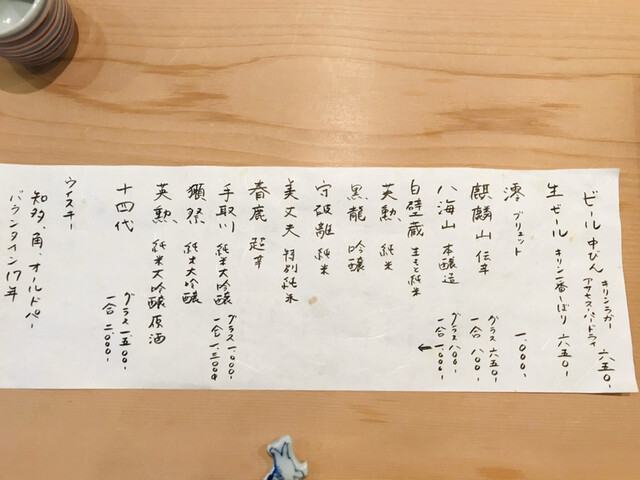 ビール 中びん キリンラガー 六五〇-
アサヒスーパードライ
生ビール キリン一番しぼり 六五〇-
澪 ブリュット 一、〇〇〇、
麒麟山 伝辛 グラス 六五〇-
一合 八〇〇-
八海山 本醸造 グラス 八〇〇-
一合 一、〇〇〇-
白壁蔵 生もと純米 ←
英勲 純米
黒龍 吟醸
守破離 純米
美丈夫 特別純米
春鹿 超辛
手取川 純米大吟醸 グラス 一、〇〇〇-
一合 一、三〇〇-
獺祭 純米大吟醸
英勲 純米大吟醸原酒
十四代 グラス 一五〇〇-
一合 二〇〇〇-
ウイスキー
知多、角、オールドパー
バランタイン17年